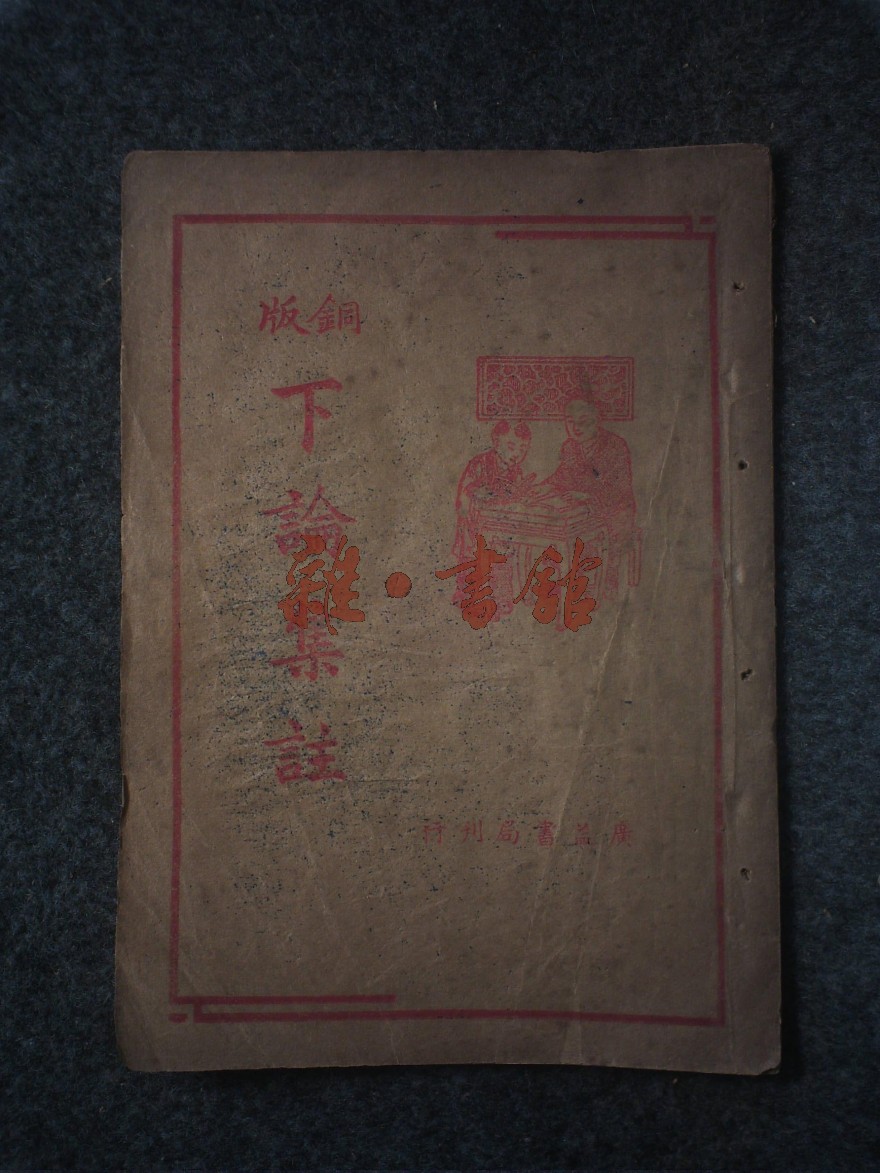 銅版
下論集註
廣益書局刊行
雜·書館